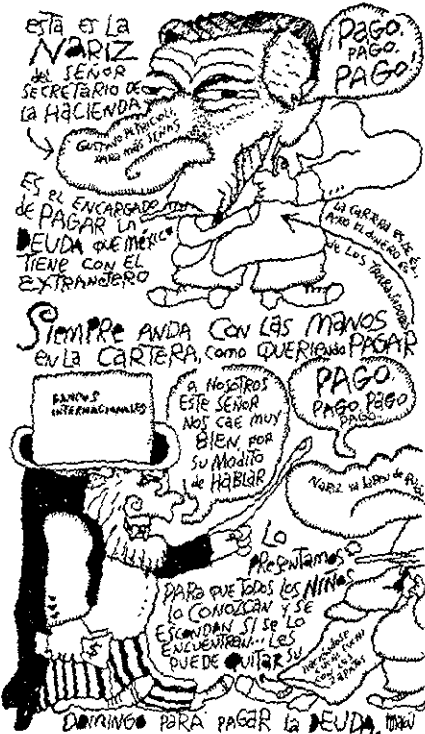 esta es La
NARIZ
del SEÑOR
SECRETARIO DE
La HACIENDA
GUSTAVO PETRICIOLI
PARA MÁS SEÑAS
¡PAGO.
PAGO.
PAGO!
ES EL ENCARGADO
de PAGAR La
DEUDA QUE MÉXICO
TIENE CON EL
EXTRANJERO
...
La CARTERA ES DE ÉL.
PERO EL DINERO ES
de LOS TRABAJADORES
SIEMPRE ANDA CON LAS MANOS
EN LA CARTERA, COMO QUERIENDO PAGAR
BANCOS
INTERNACIONALES
a NOSOTROS
ESTE SEÑOR
NOS CAE MUY
BIEN POR
SU MODITO
de HABLAR
PAGO.
PAGO. PAGO
PAGO.
NARIZ
Lo
PRESENTAMOS
PARA QUE TODOS LOS NIÑOS
LO CONOZCAN Y SE
ESCONDAN SI SE LO
ENCUENTRAN.. LES
PUEDE QUITAR SU
$
DOMINGO PARA PAGAR La DEUDA.